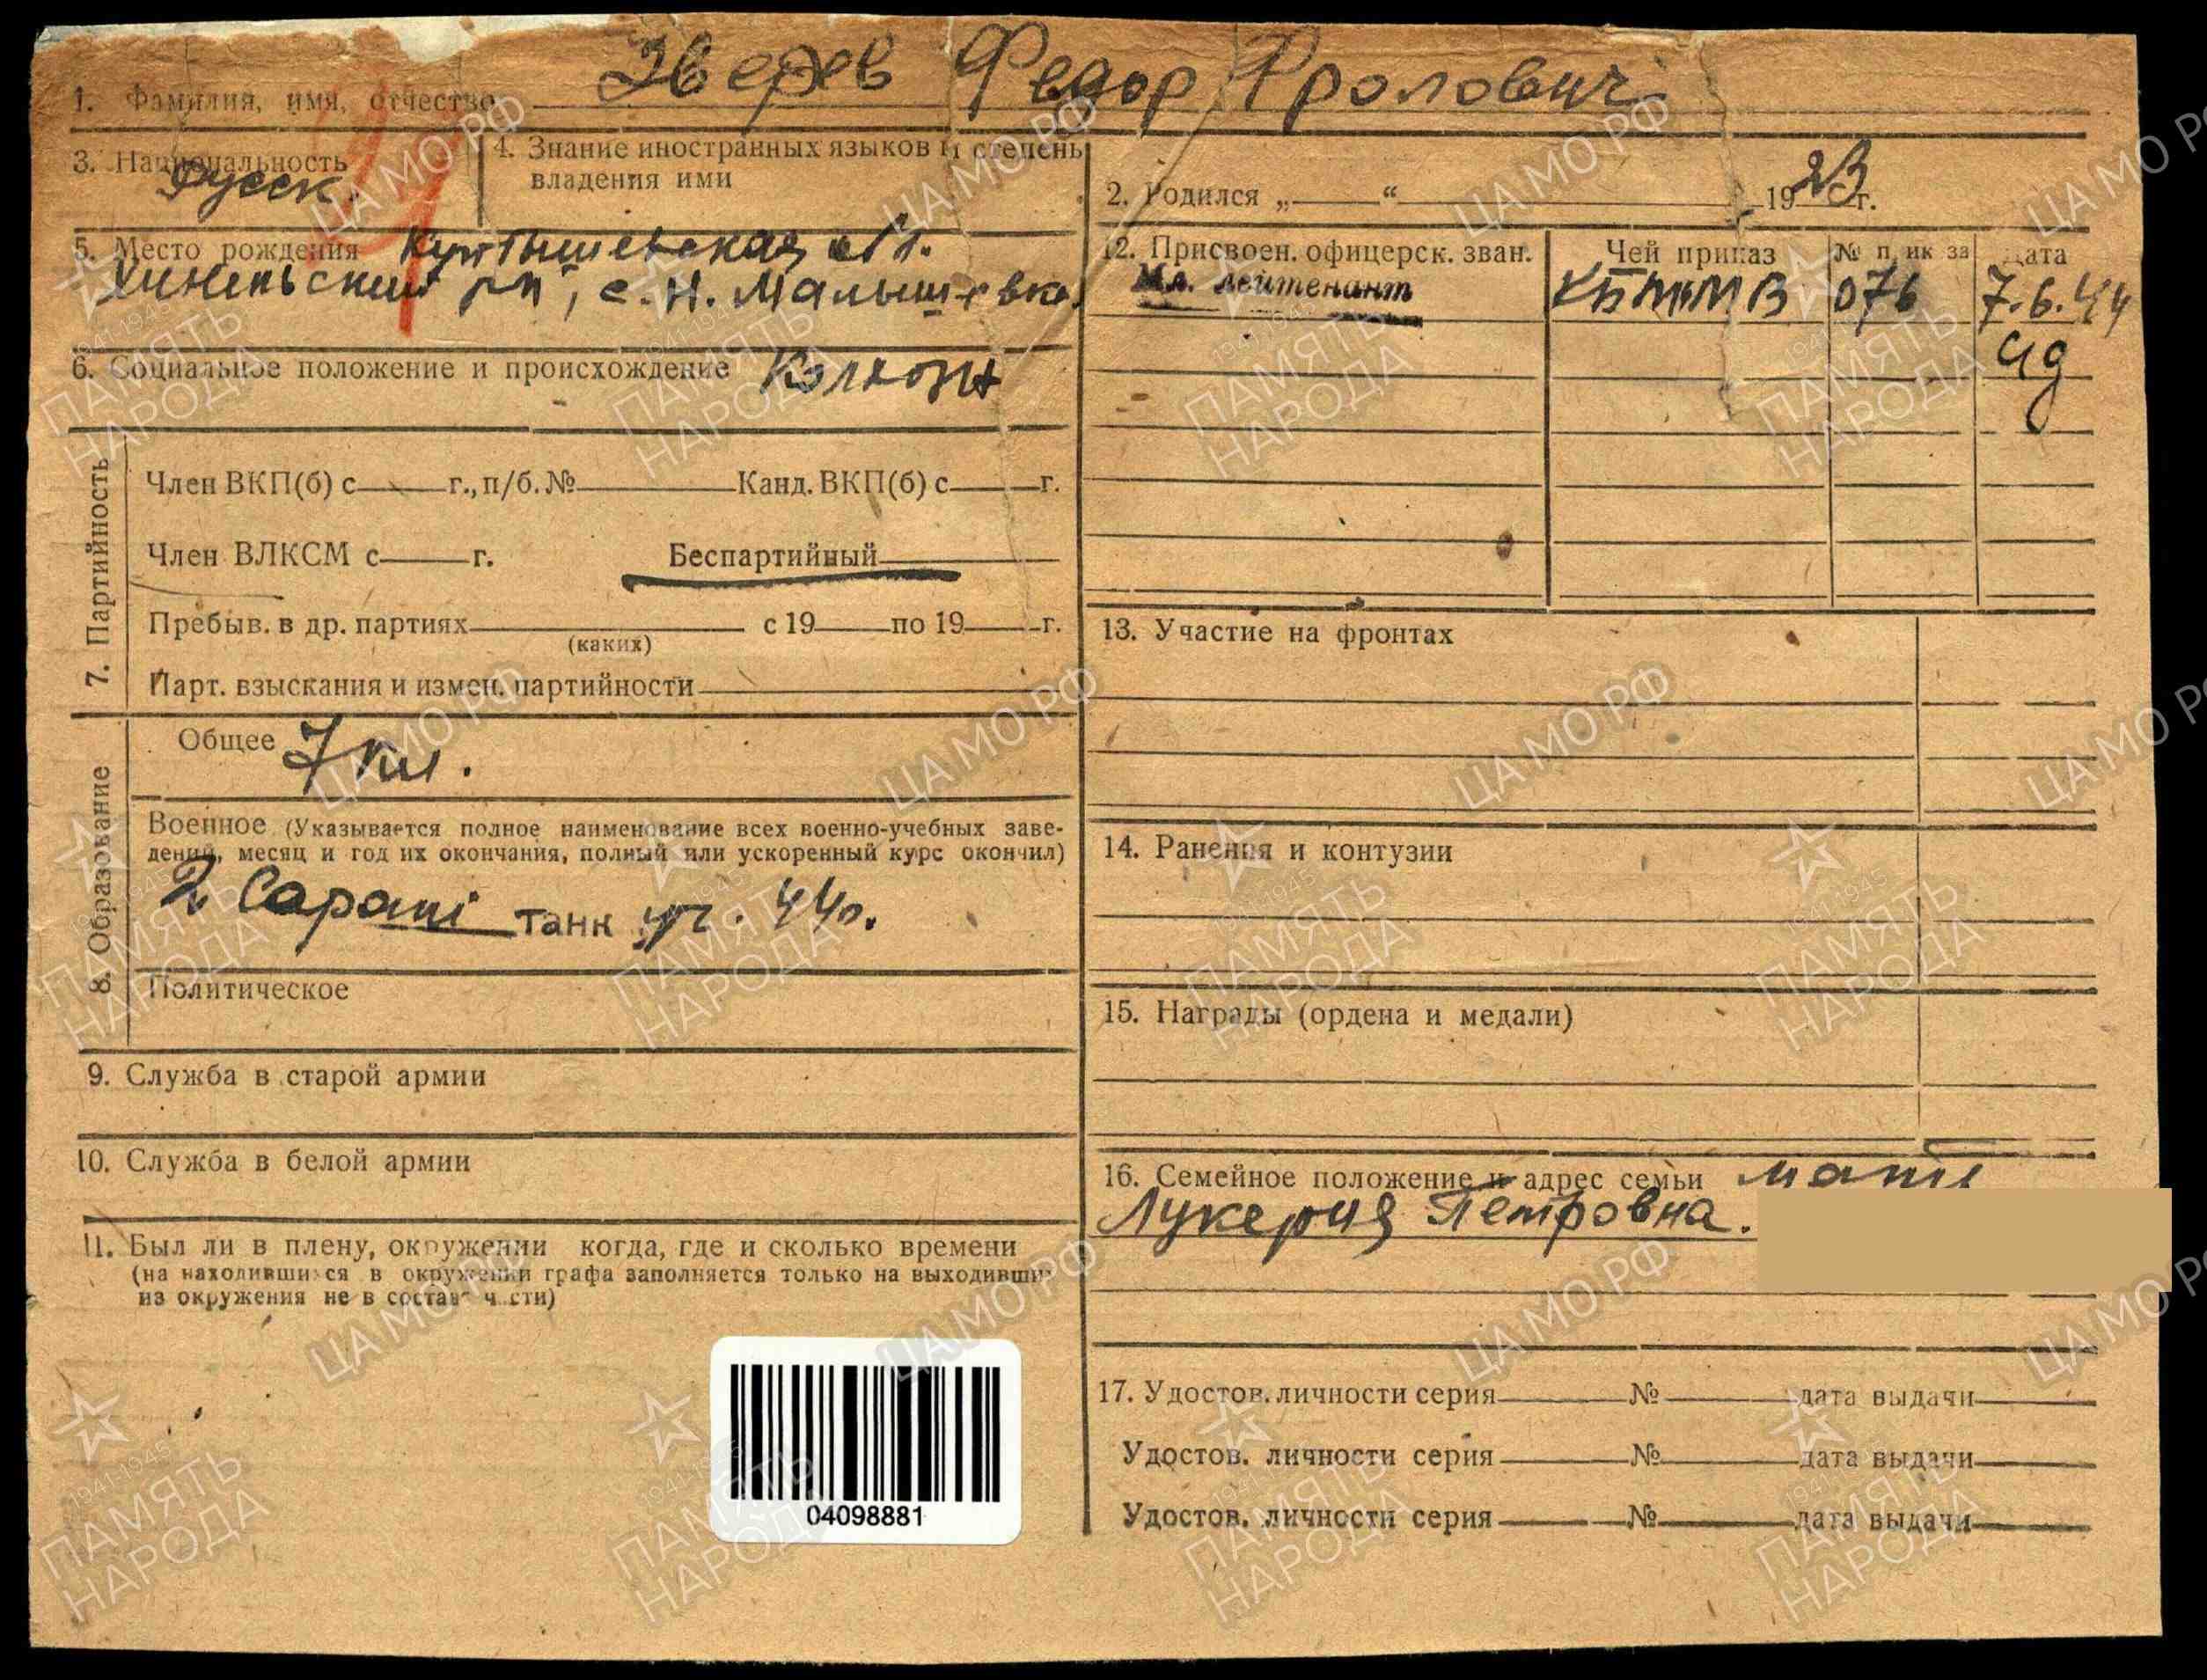 1. Фамилия, имя, отчество Зверев Федор Фролович
3. Национальность
Русск.
4. Знание иностранных языков и степень
владения ими
2. Родился „ “ 1923 г.
5. Место рождения Куйбышевская обл.
Кинельский р-н, с. Н. Малышевка
6. Социальное положение и происхождение Колхозн
7. Партийность
Член ВКП(б) с г., п/б. № Канд. ВКП(б) с г.
Член ВЛКСМ с г. Беспартийный
Пребыв. в др. партиях с 19 по 19 г.
(каких)
Парт. взыскания и измен. партийности
8. Образование
Общее 7 кл.
Военное (Указывается полное наименование всех военно-учебных заве-
дений, месяц и год их окончания, полный или ускоренный курс окончил)
2 Сарат танк уч. 44г.
Политическое
9. Служба в старой армии
10. Служба в белой армии
11. Был ли в плену, окружении когда, где и сколько времени
(на находившихся в окружении графа заполняется только на выходивши
из окружения не в составе части)
04098881
12. Присвоен. офицерск. зван. Чей приказ № приказа Дата
Мл. лейтенант КБТиМВ 076 7.6.44
13. Участие на фронтах
14. Ранения и контузии
15. Награды (ордена и медали)
16. Семейное положение и адрес семьи мать
Лукерия Петровна.
17. Удостов. личности серия № дата выдачи
Удостов. личности серия № дата выдачи
Удостов. личности серия № дата выдачи
ЦАМО РФ
1941-1945
ПАМЯТЬ
НАРОДА